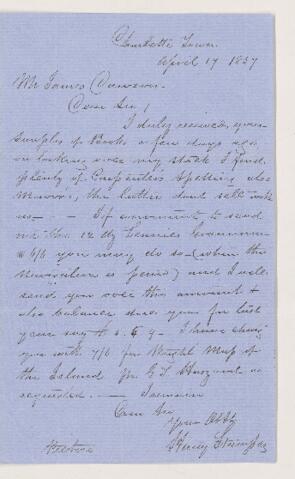 Charlotte Town
April 17 1857
Mr James Dawson
Dear Sir,
I duly received your
samples of Books a few days ago
on looking over my stock I find
plenty of Carpenters Spelling also
the latter dont sell with
us — If convenient to send
me Doz
@ 6/6 you may do so (when the
Navigation is ) and I will
send you over this amount &
also balance due you for last
year say I have
you with 7/6 for Map of
the Island for G. T. as
requested — I remain
Dear Sir
Yours
Henry